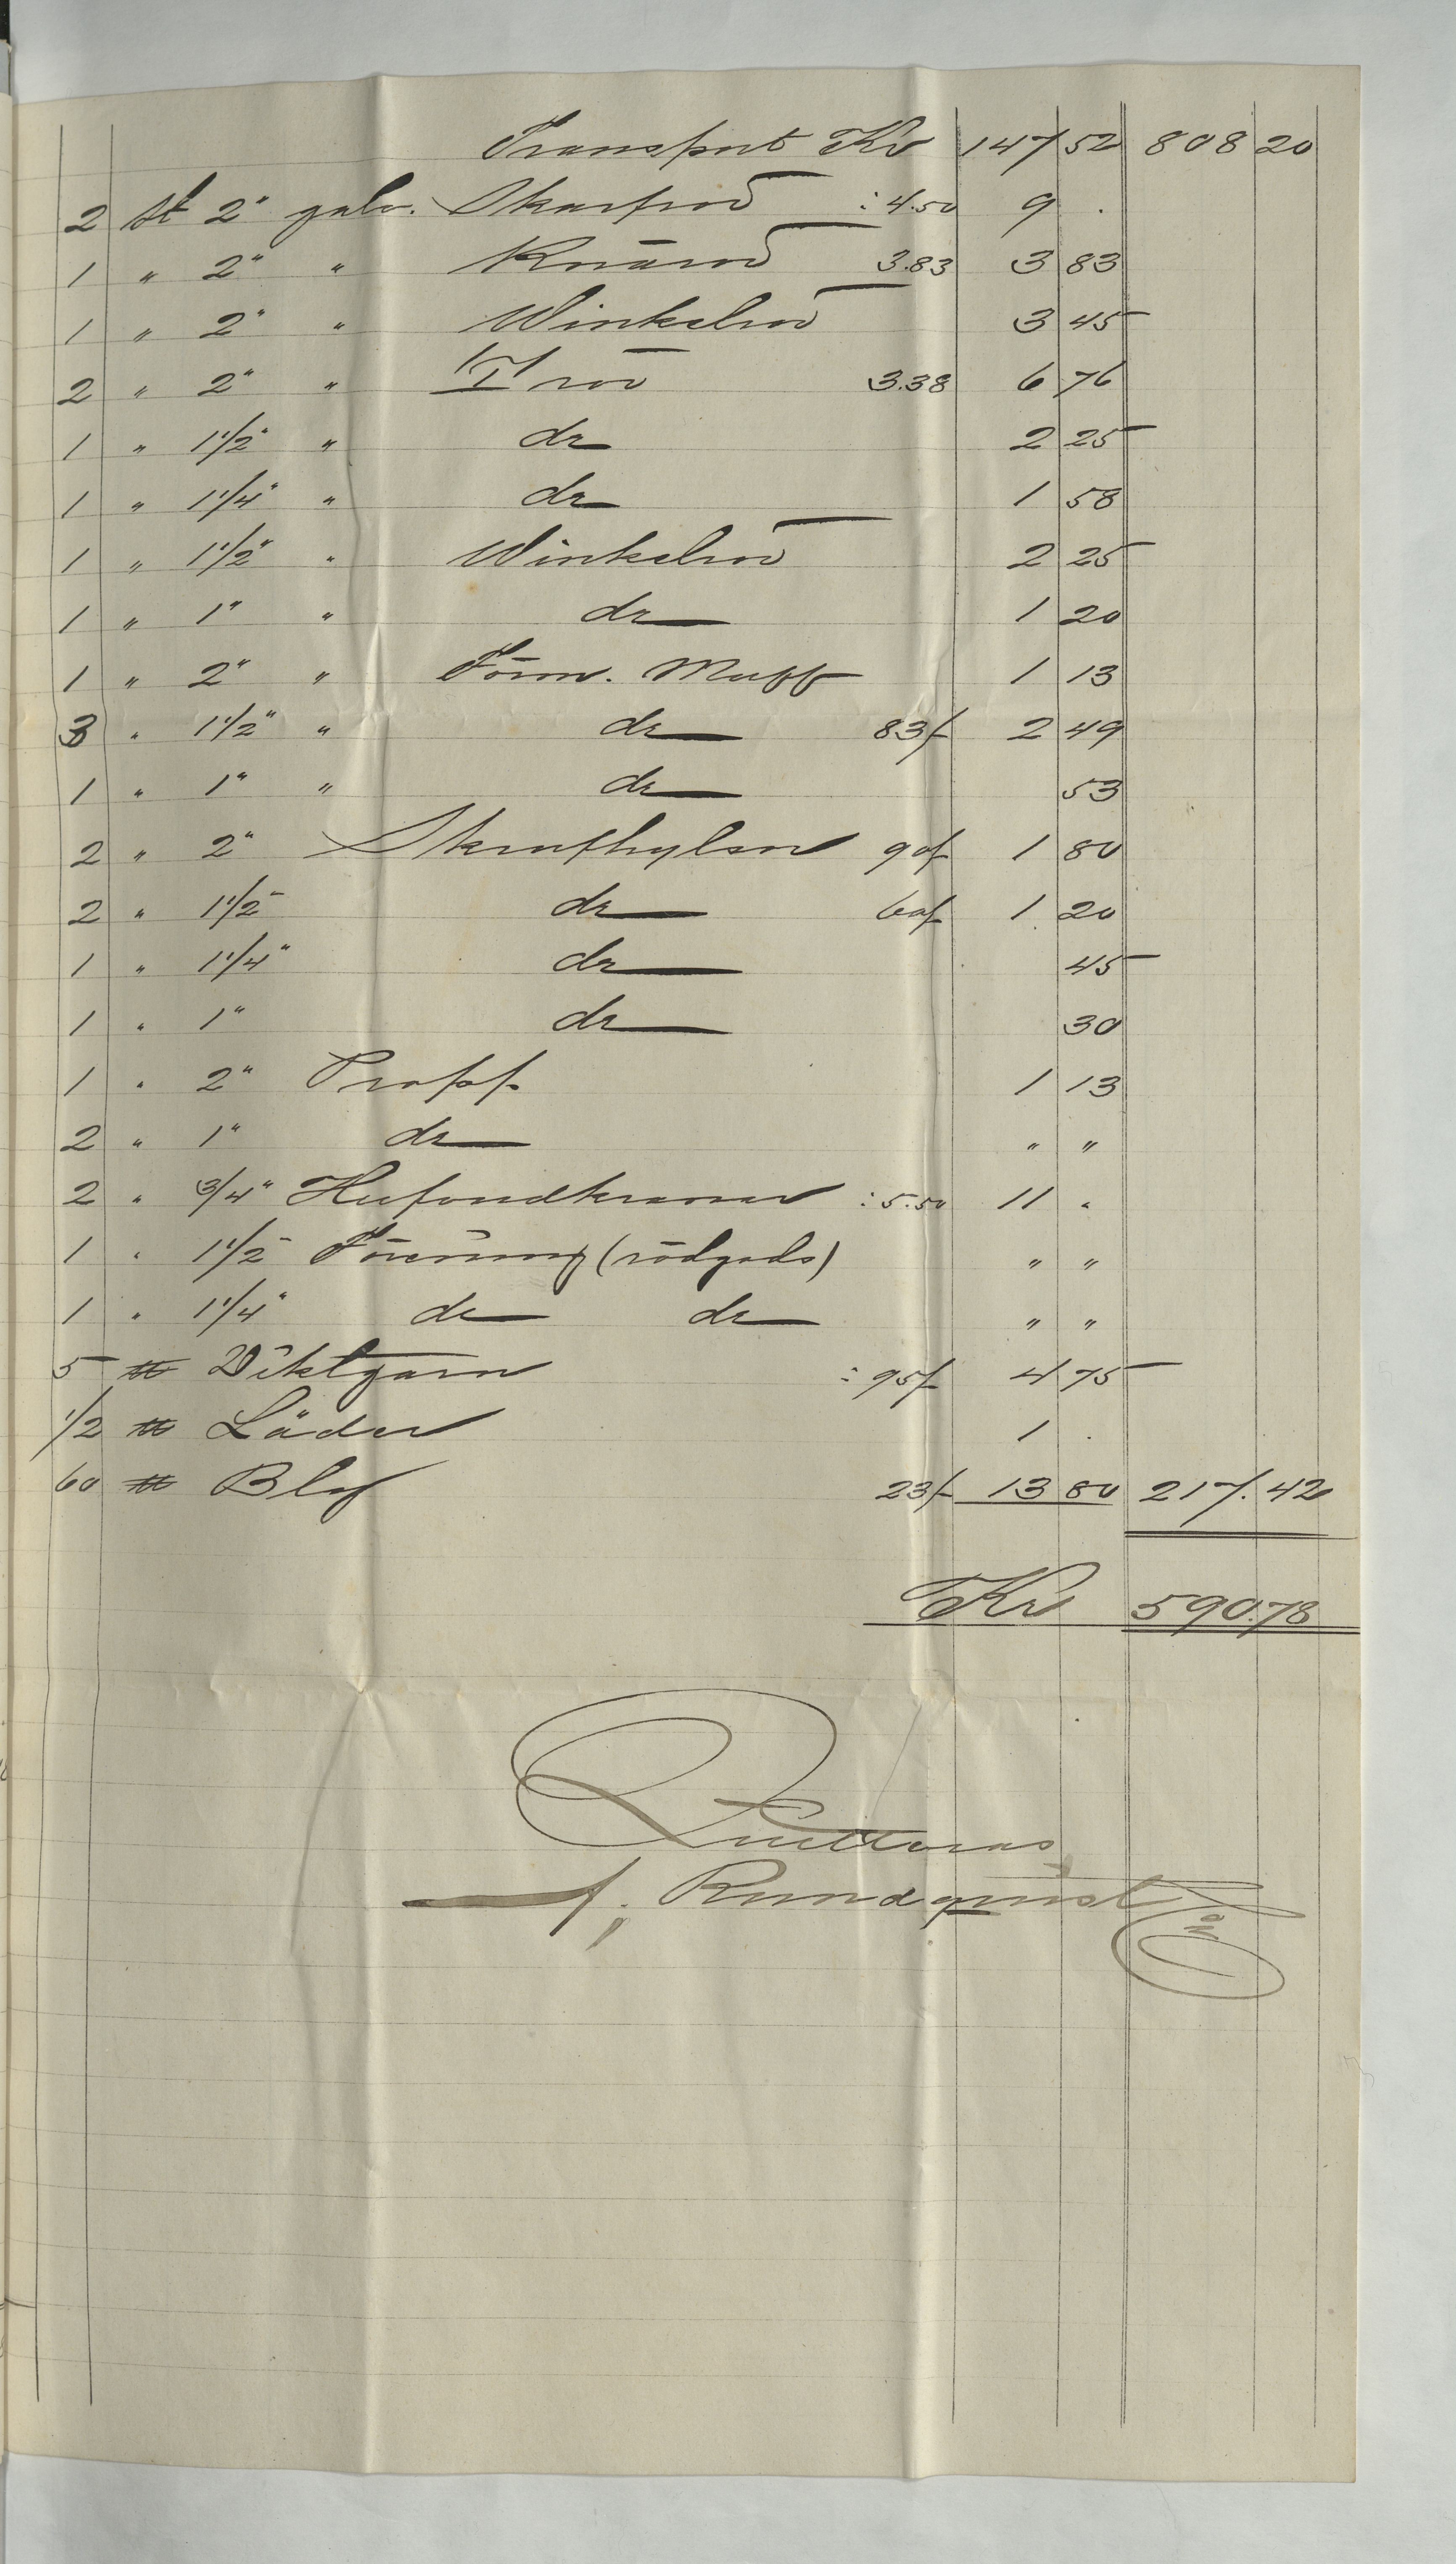 Transport Kr 147 52 808 20
2 st 2" galv. Skarfrör : 4.50 9 .
1 " 2" " Knärör 3.83 3 83
1 " 2" " Winkelrör 3 45
2 " 2" " T rör 3.38 6 76
1 " 1 1/2" " do 2 25
1 " 1 1/4" " do 1 58
1 " 1 1/2" " Winkelrör 2 25
1 " 1" " do 1 20
1 " 2" " Förm. Muff 1 13
3 " 1 1/2" " do 83/- 2 49
1 " 1" " do 53
2 " 2" Skrufhylsor 90/- 1 80
2 " 1 1/2" do 60/- 1 20
1 " 1 1/4" do 45
1 " 1" do 30
1 " 2" Propp 1 13
2 " 1" do " "
2 " 3/4" : 5.50 11 "
1 " 1 1/2" Förening (rödgods) " "
1 " 1 1/4" do do " "
5 ℔ Diktgarn : 95/- 4 75
1/2 ℔ Läder 1 .
60 ℔ Bly 23/- 13 80 217. 42
Kr 590.78
Quitteras
Rundquist